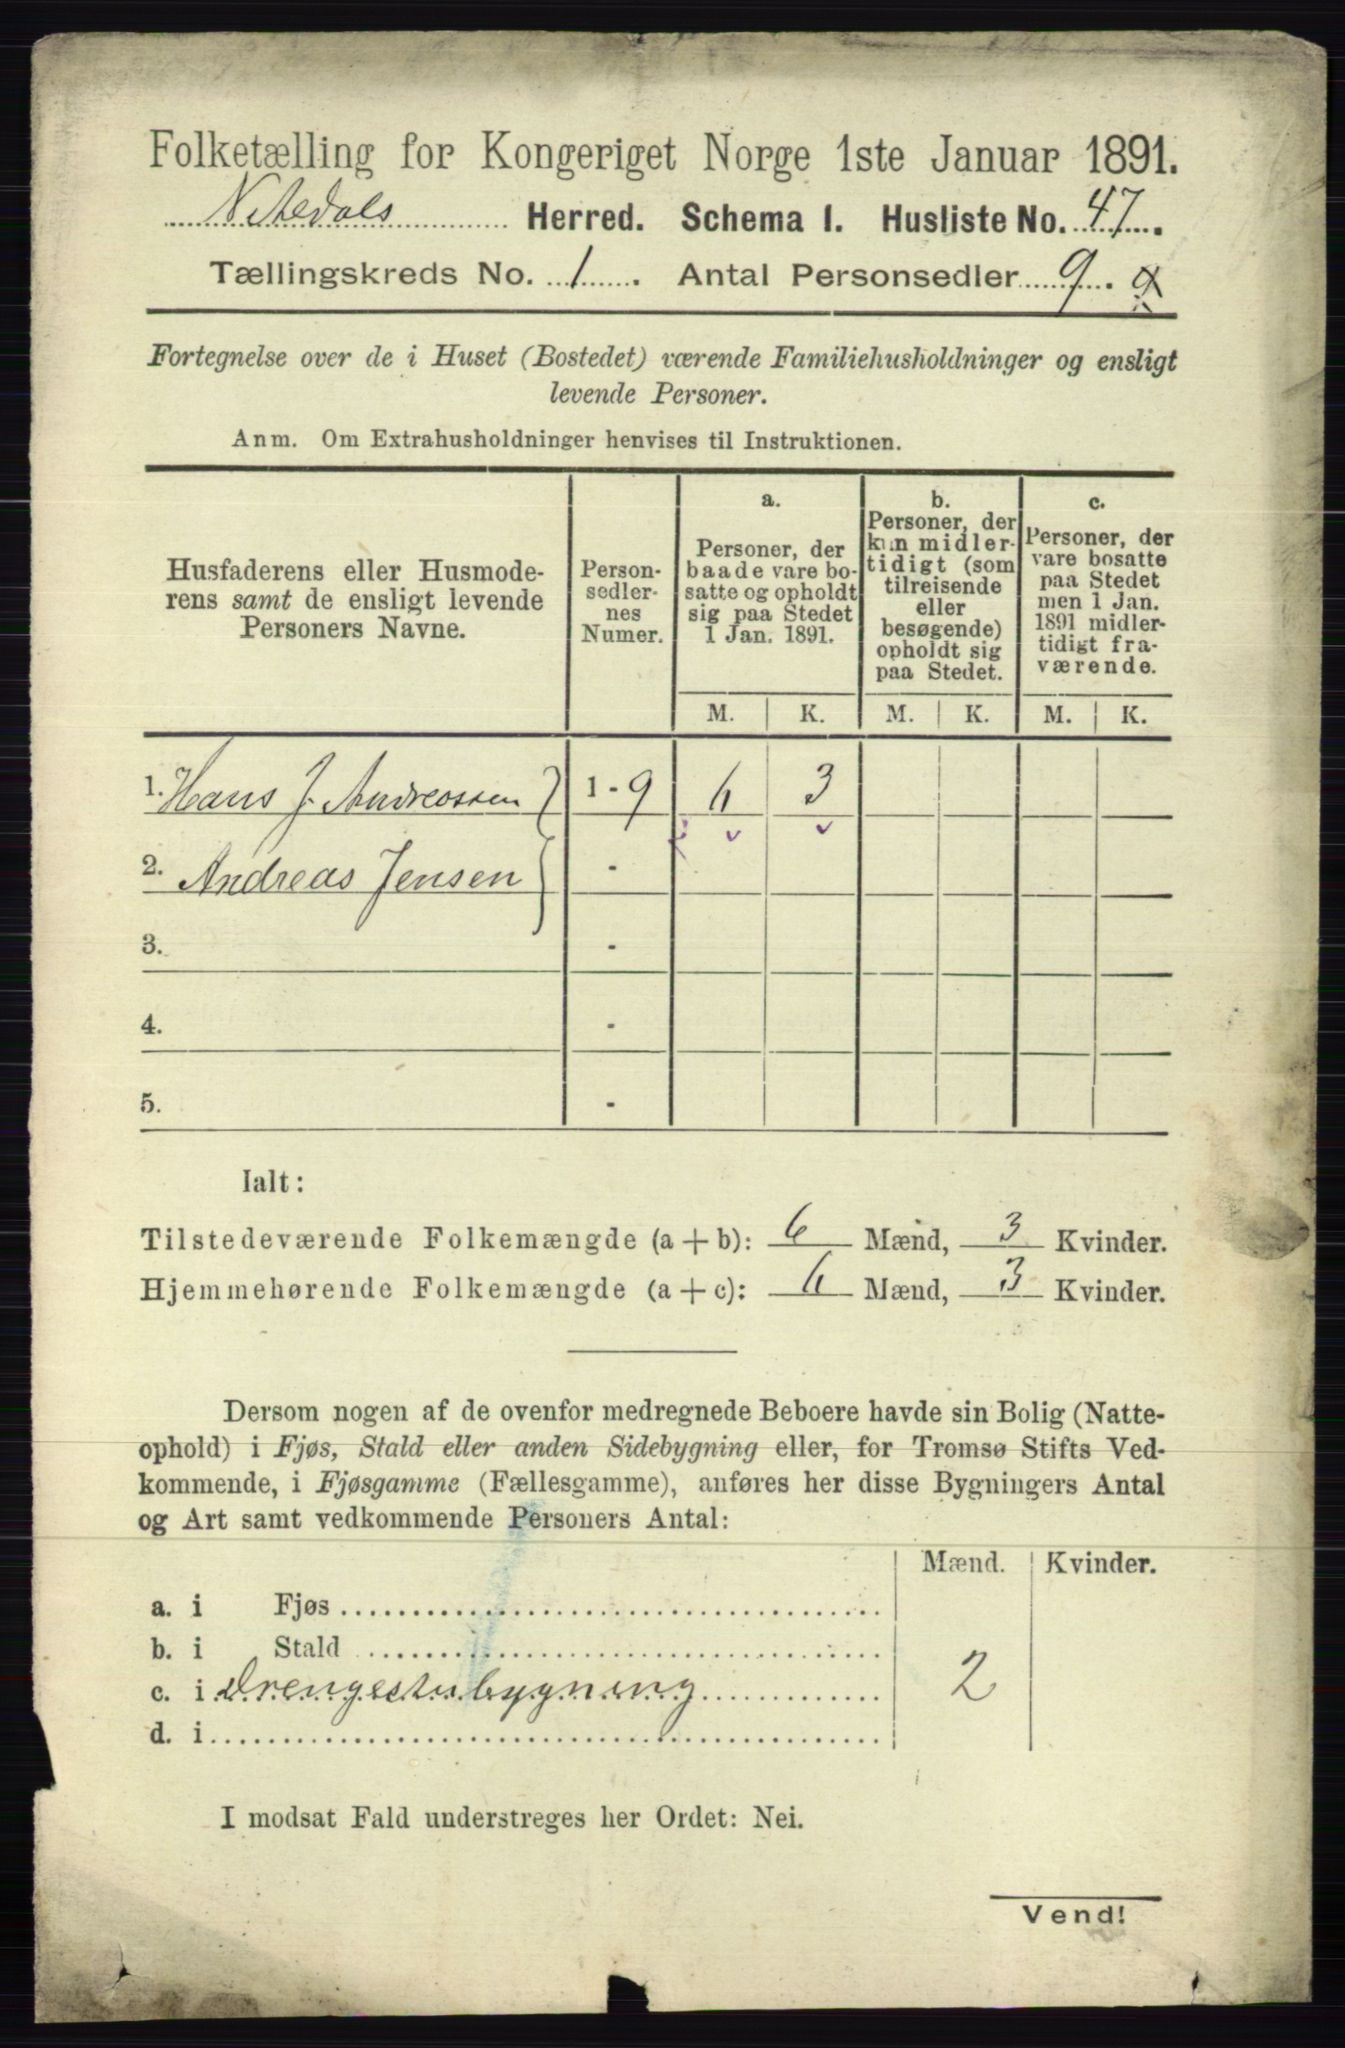 Folketælling for Kongeriget Norge 1ste Januar 1891.
Nitedals Herred. Schema I. Husliste No. 47.
Tællingskreds No. 1. Antal Personsedler 9. 9
Fortegnelse over de i Huset (Bostedet) værende Familiehusholdninger og ensligt
levende Personer.
Anm. Om Extrahusholdninger henvises til Instruktionen.
Husfaderens eller Husmode-
rens samt de ensligt levende
Personers Navne.
Person-
sedler-
nes
Numer.
a.
Personer, der
baade vare bo-
satte og opholdt
sig paa Stedet
1 Jan. 1891.
b.
Personer, der
kun midler-
tidigt (som
tilreisende
eller
besøgende)
opholdt sig
paa Stedet.
c.
Personer, der
vare bosatte
paa Stedet
men 1 Jan.
1891 midler-
tidigt fra-
værende.
M. K. M. K. M. K.
1. Hans J. Andreassen 1 - 9 6 3
2. Andreas Jensen -
3. -
4. -
5. -
Ialt:
Tilstedeværende Folkemængde (a + b): 6 Mænd, 3 Kvinder.
Hjemmehørende Folkemængde (a + c): 6 Mænd, 3 Kvinder.
Dersom nogen af de ovenfor medregnede Beboere havde sin Bolig (Natte-
ophold) i Fjøs, Stald eller anden Sidebygning eller, for Tromsø Stifts Ved-
kommende, i Fjøsgamme (Fællesgamme), anføres her disse Bygningers Antal
og Art samt vedkommende Personers Antal:
Mænd. Kvinder.
a. i Fjøs
b. i Stald
c. i Drengestubygning 2
d. i
I modsat Fald understreges her Ordet: Nei.
Vend!